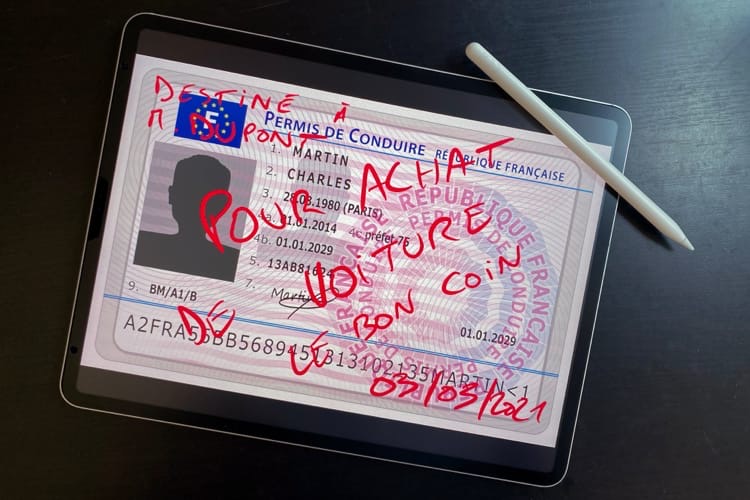 DESTINÉ À
M. DUPONT
POUR ACHAT
DE VOITURE
LE BON COIN
03/03/2021
F
PERMIS DE CONDUIRE RÉPUBLIQUE FRANÇAISE
1. MARTIN
2. CHARLES
3. 28.03.1980 (PARIS)
4a. 01.01.2014 4c préfet 76
4b. 01.01.2029
5. 13AB81624
7. Martin
9. BM/A1/B
01.01.2029
MARTIN<1
RÉPUBLIQUE FRANÇAISE
PERMIS DE CONDUIRE